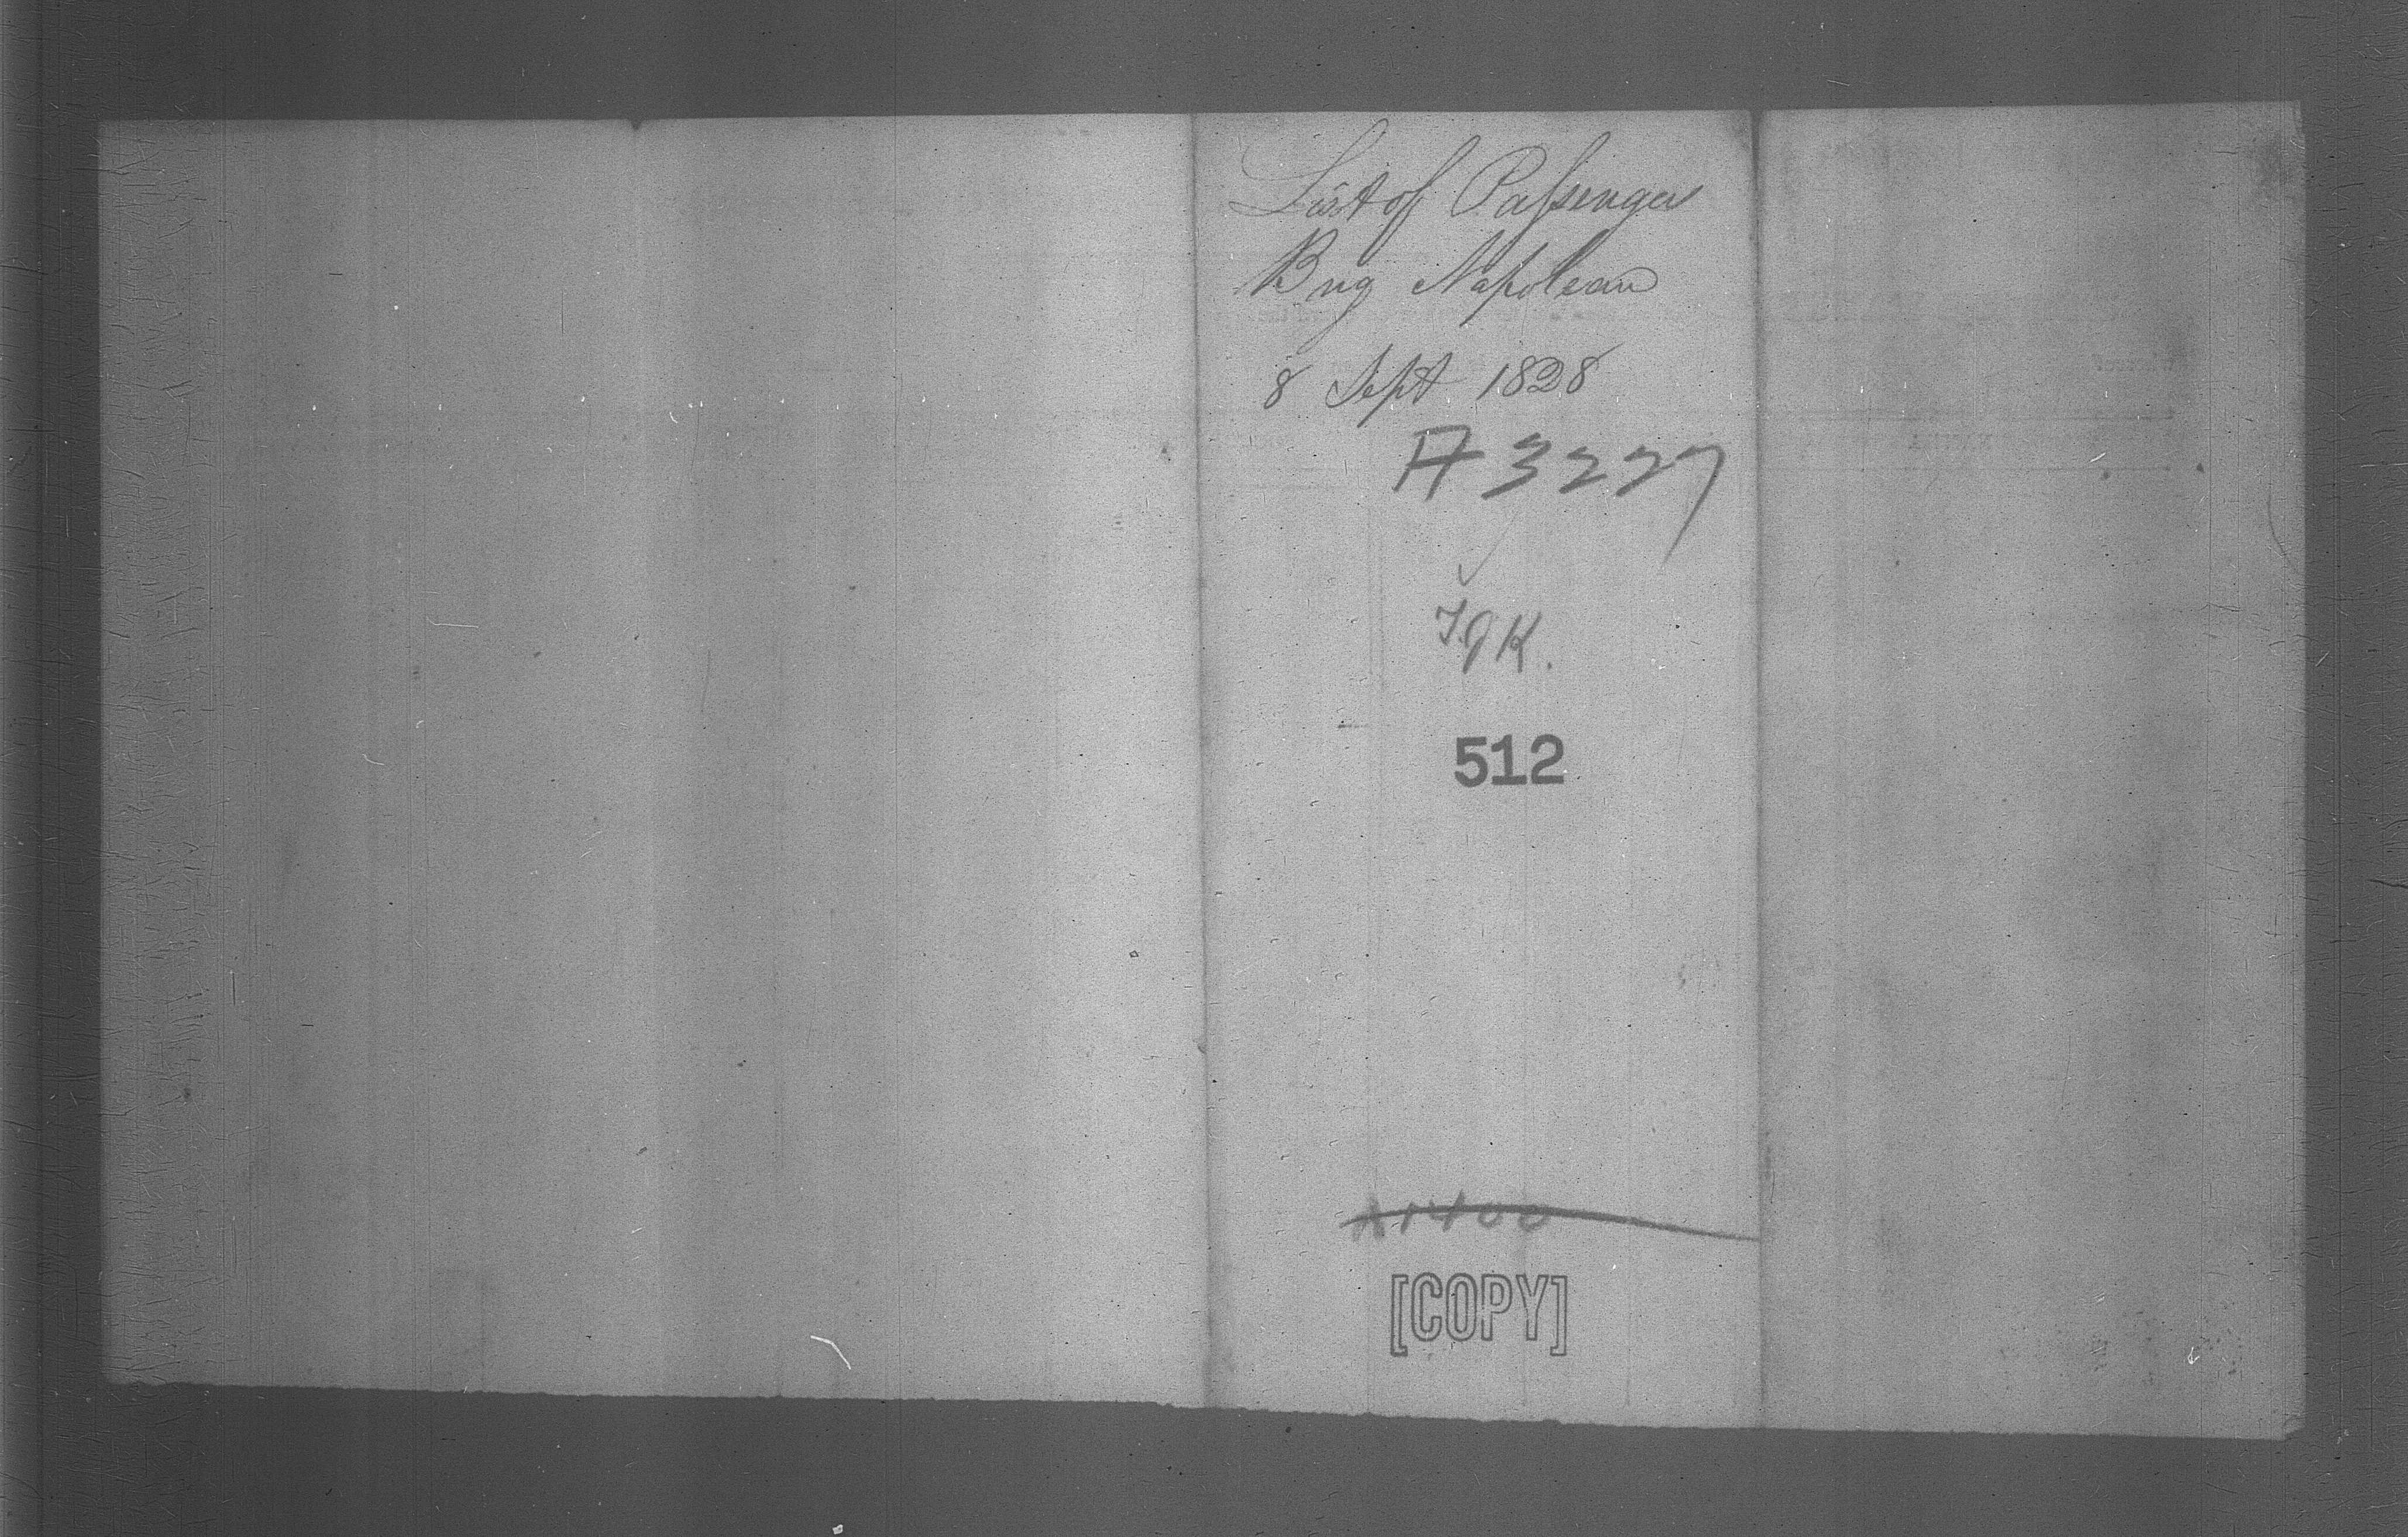 List of Passenger
Brig Napolean
8 Sept 1828
A 3227
J.J.K.
512
A1400
[COPY]